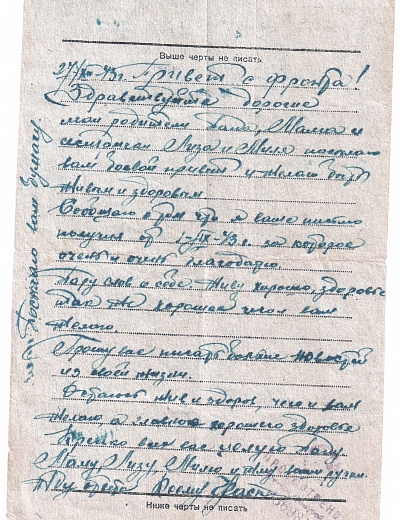 Выше черты не писать
27/ -43г. Привет с фронта!
Здравствуйте дорогие
мои родители Папа, Мамма и
Лиза и Миля посылаю
вам боевой привет и желаю быть
живым и здоровым
Сообщаю о том что я ваше письмо
получил от -43г. за которое
очень и очень благодарю.
Пару слов о себе живу хорошо, здоровье
так же хорошее чего вам
желаю.
Прошу вас писать больше новостей
из своей жизни.
Остаюсь жив и здоров, чего и вам
желаю, а главное хорошего здоровья
Крепко всех вас целую Папу.
Маму, Лизу, Милю и
Жду ответа
Ниже черты не писать
вам бумагу